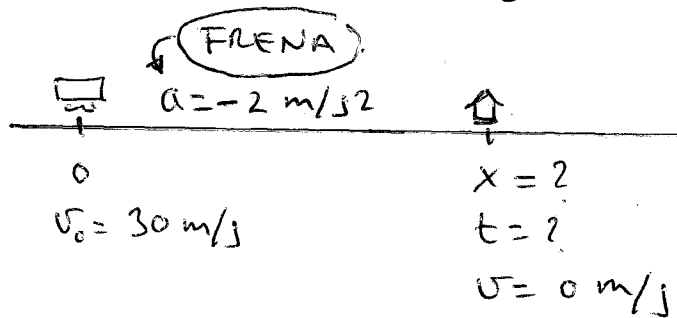 FRENA
a=-2 m/s2
0
x = ?
v₀= 30 m/s
t = ?
v= 0 m/s